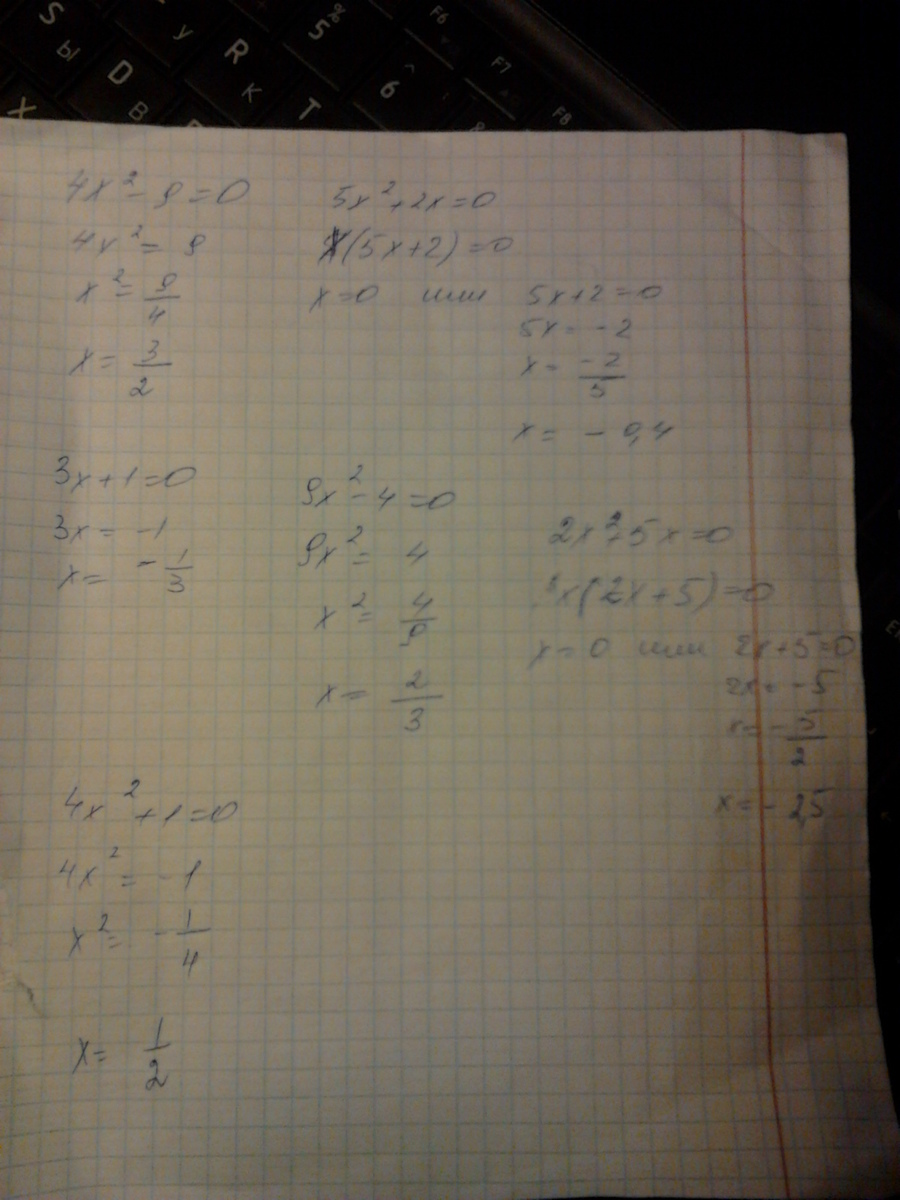 S
Ы
D
В
X
У
R
К
T
%
5
^
6
F6
F7
F8
4x² - 9 = 0
4x² = 9
x² = 9/4
x = 3/2
5x² + 2x = 0
x(5x + 2) = 0
x = 0 или 5x + 2 = 0
5x = -2
x = -2/5
x = -0,4
3x + 1 = 0
3x = -1
x = -1/3
9x² - 4 = 0
9x² = 4
x² = 4/9
x = 2/3
2x² + 5x = 0
x(2x + 5) = 0
x = 0 или 2x + 5 = 0
2x = -5
x = -5/2
x = -2,5
4x² + 1 = 0
4x² = -1
x² = -1/4
x = 1/2